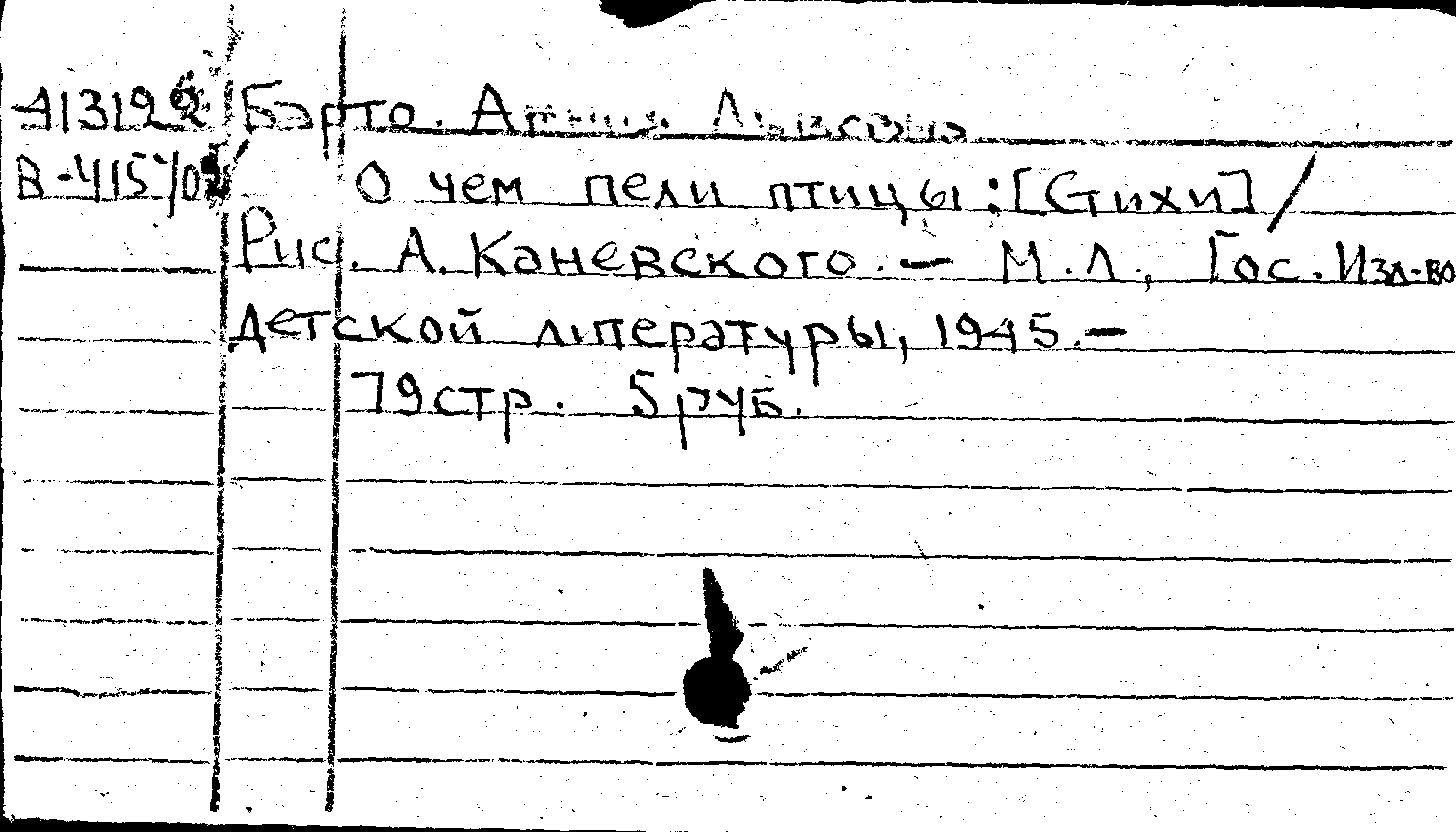 Барто. Агния Львовна
В-415/02 О чем пели птицы: [Стихи] /
Рис. А. Каневского. — М.Л., Гос. Изд-во
детской литературы, 1945. —
79 стр. 5 руб.